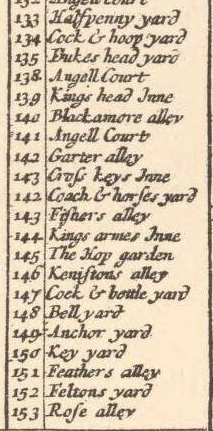 132 Angell Court
133 Halfpenny yard
134 Cock & hoop yard
135 Bukes head yard
138 Angell Court
139 Kings head Inne
140 Blackamore alley
141 Angell Court
142 Garter alley
143 Cross keys Inne
142 Coach & horses yard
143 Fishers alley
144 Kings armes Inne
145 The Hop garden
146 Kenistons alley
147 Cock & bottle yard
148 Bell yard
149 Anchor yard
150 Key yard
151 Feathers alley
152 Feltons yard
153 Rose alley